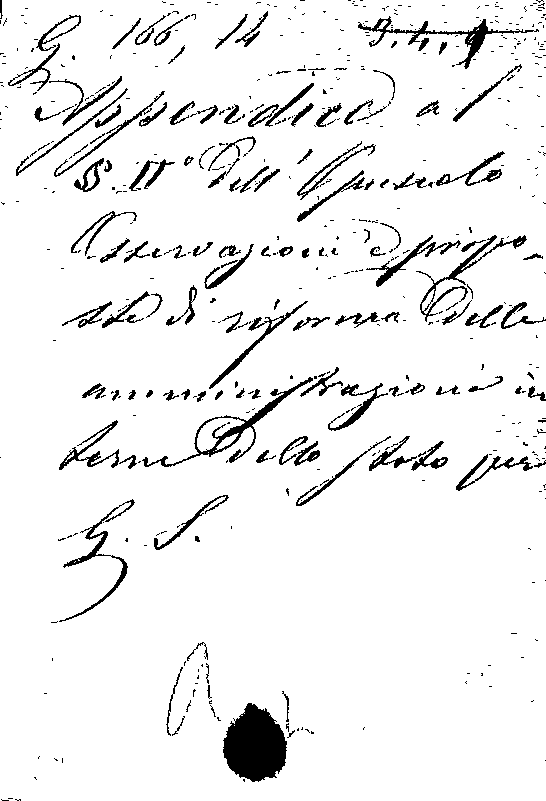 G. 166, 14 3.4.9
Appendice al
§ IIº Dell' Opuscolo
Osservazioni e propo-
ste di riforma Delle
amministrazioni in
terne Dello stato per
G. S.